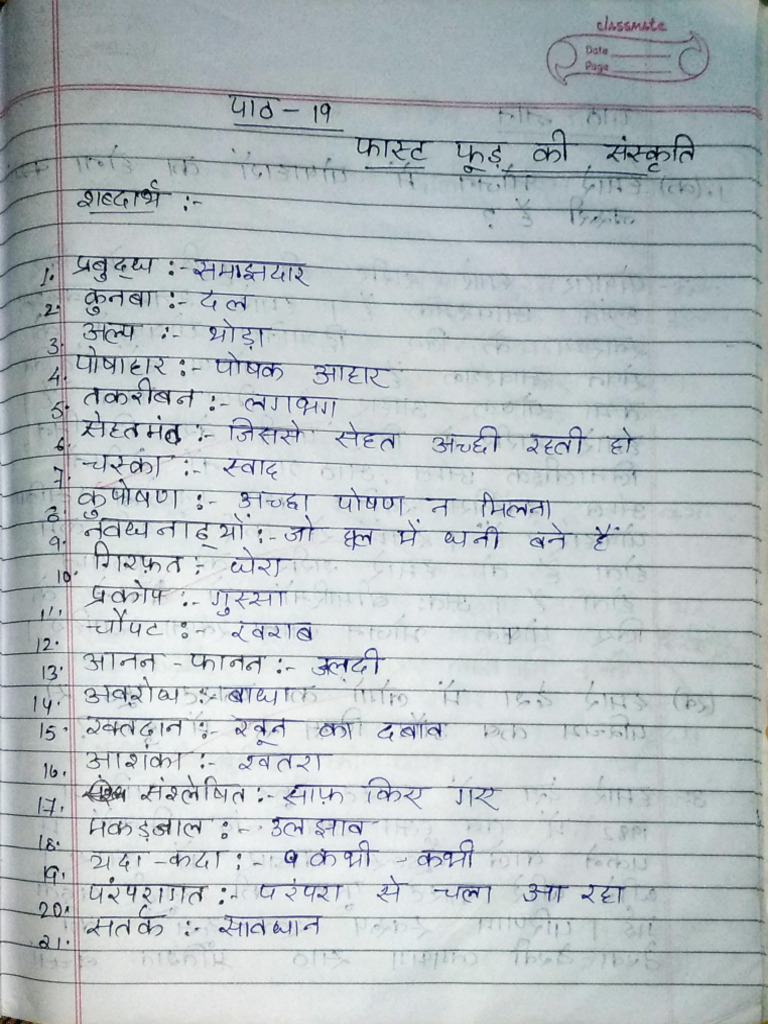 classmate
Date
Page
पाठ - 19
फास्ट फूड़ की संस्कृति
शब्दार्थ :-
1. प्रबुद्ध :- समाझदार
2. कुनबा :- दल
3. अल्प :- थोड़ा
4. पोषाहार :- पोषक आहार
5. तकरीबन :- लगभग
6. सेहतमंद :- जिससे सेहत अच्छी रहती हो
7. चस्का :- स्वाद
8. कुपोषण :- अच्छा पोषण न मिलना
9. नवधनाढ्यों :- जो हाल में धनी बने हैं
10. गिरफ़त :- घेरा
11. प्रकोप :- गुस्सा
12. चौपट :- खराब
13. आनन - फानन :- जलदी
14. अवरोध :- बाधा
15. रक्तदान :- खून का दबाव
16. आशंका :- खतरा
17. संश्लेषित :- साफ़ किए गए
18. मकड़जाल :- उलझाव
19. यदा - कदा :- कभी - कभी
20. परंपरागत :- परंपरा से चला आ रहा
21. सतर्क :- सावधान